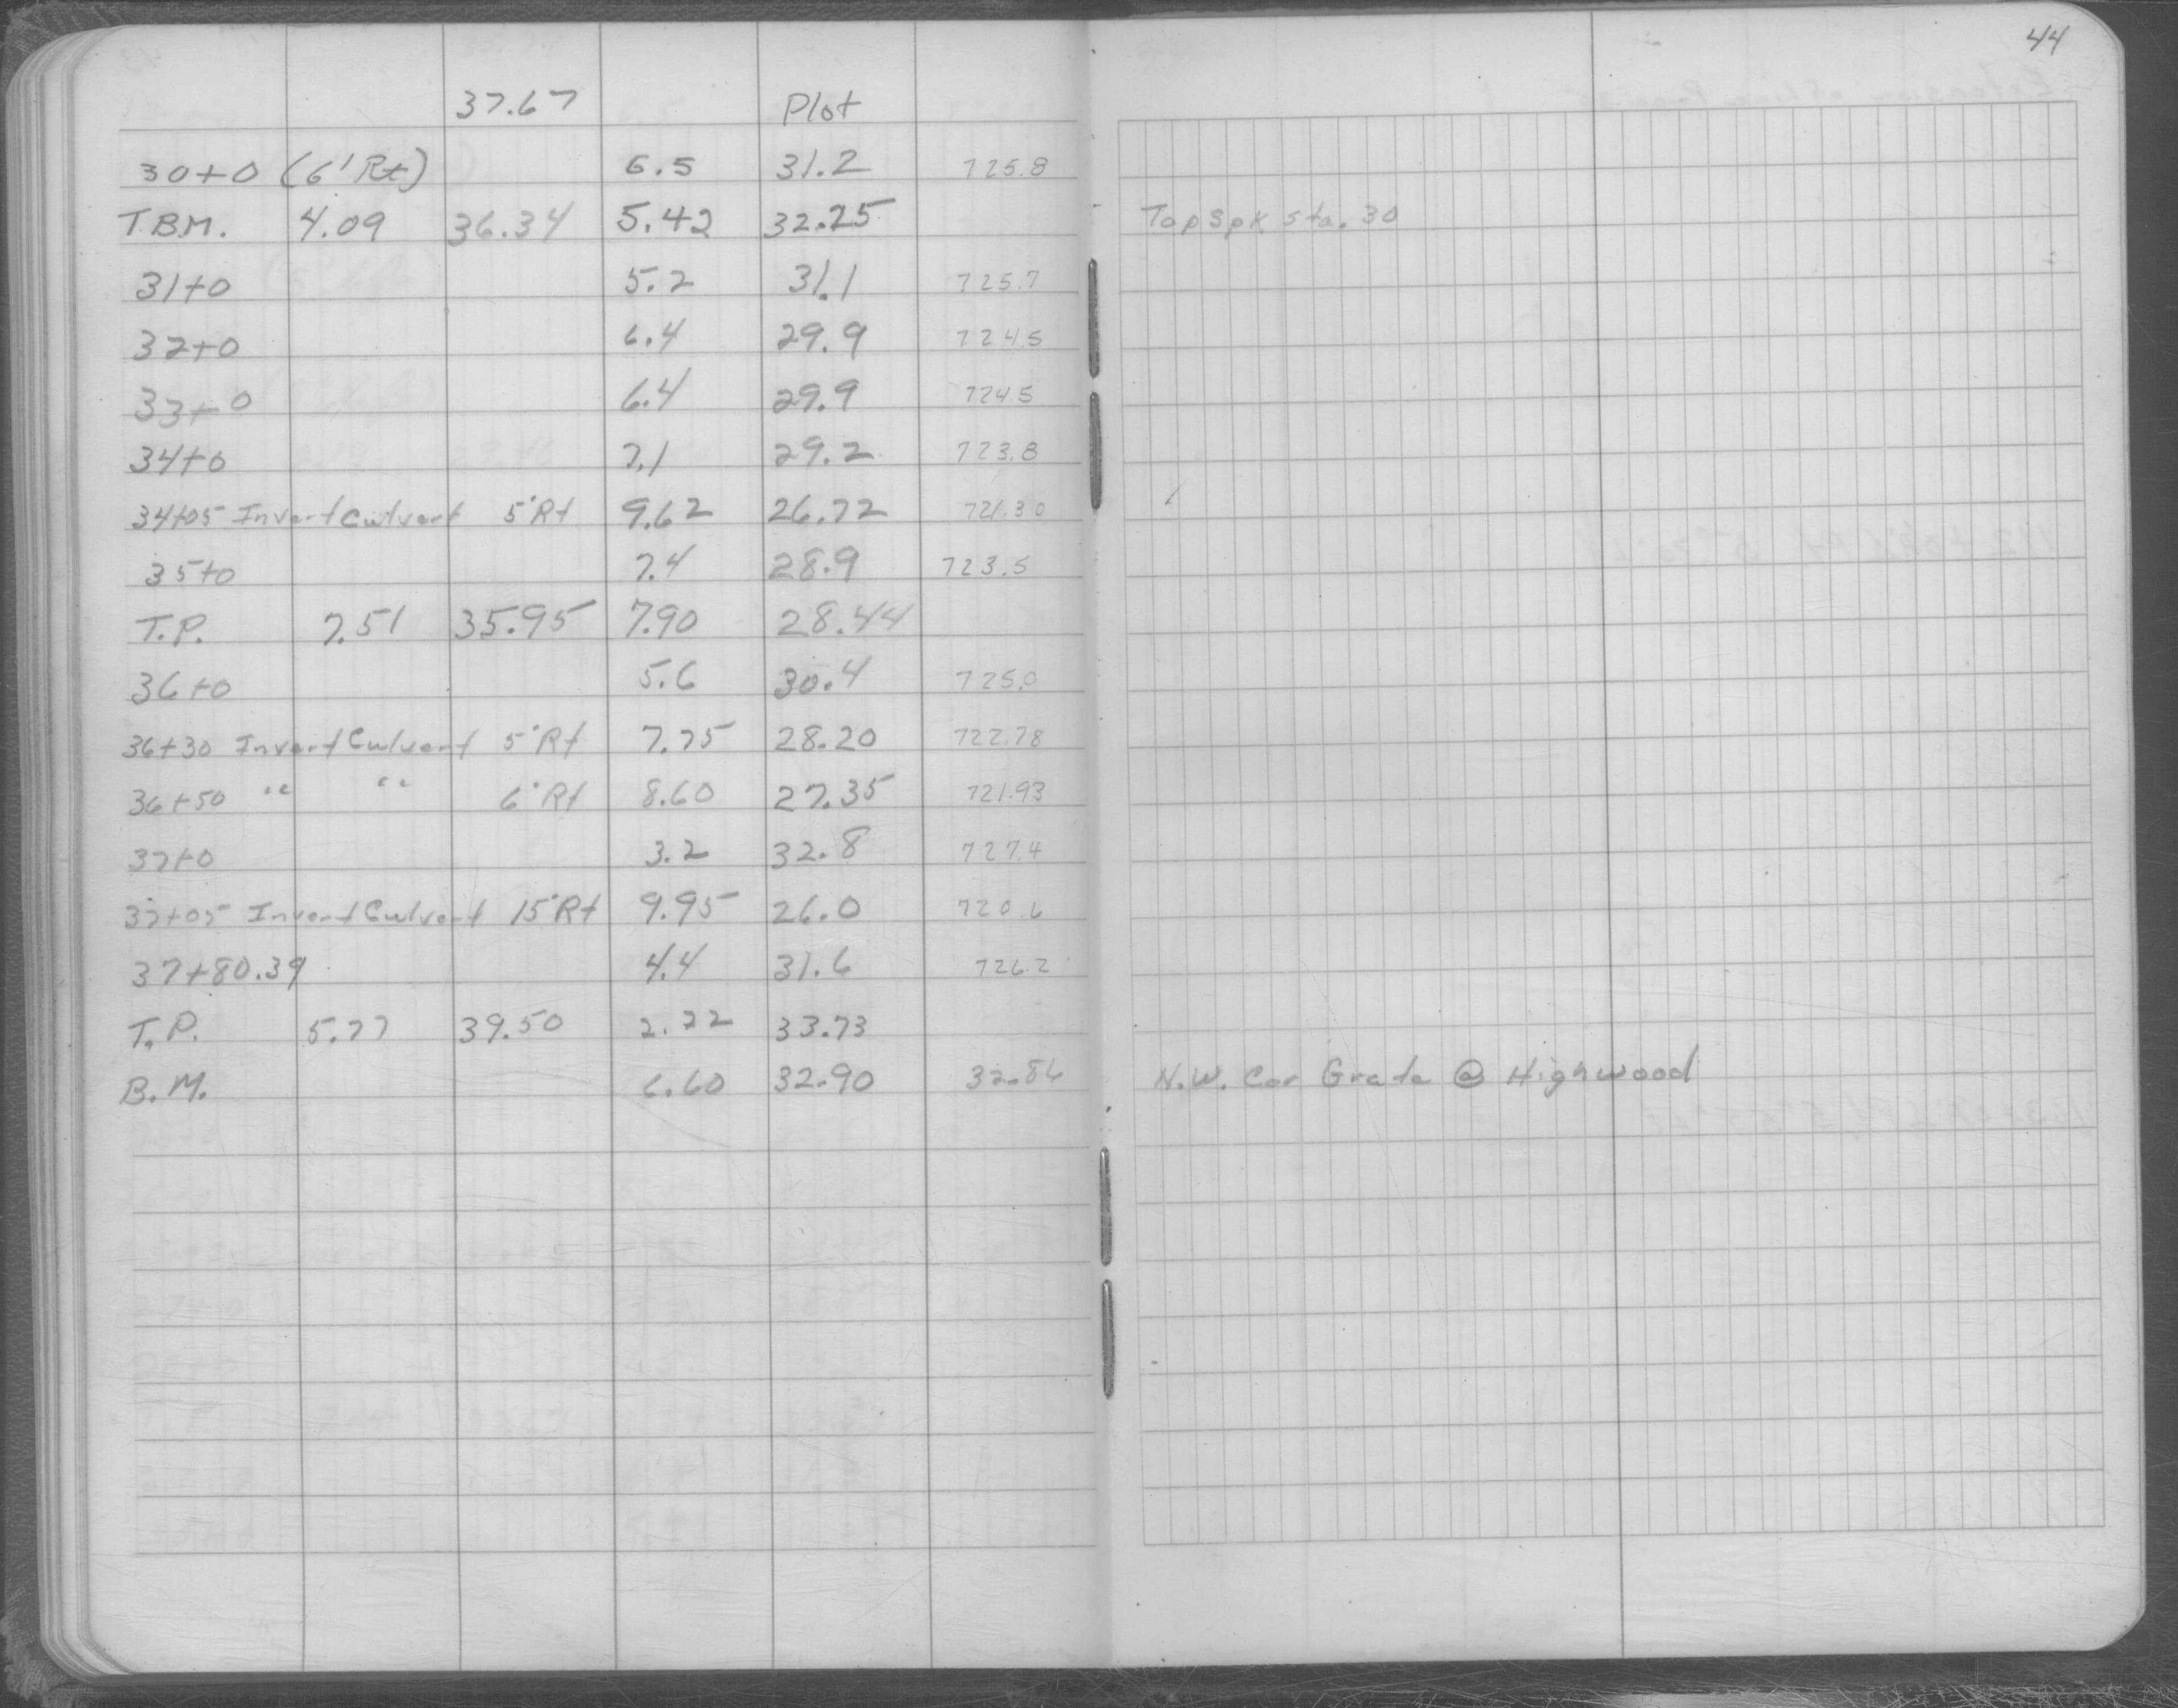 44
37.67 Plot
30+0 (6' Rt) 6.5 31.2 725.8
T.B.M. 4.09 36.34 5.42 32.25 Top Spk sta. 30
31+0 5.2 31.1 725.7
32+0 6.4 29.9 724.5
33+0 6.4 29.9 724.5
34+0 7.1 29.2 723.8
34+05 Invert Culvert 5' Rt 9.62 26.72 721.30
35+0 7.4 28.9 723.5
T.P. 7.51 35.95 7.90 28.44
36+0 5.6 30.4 725.0
36+30 Invert Culvert 5' Rt 7.75 28.20 722.78
36+50 " " 6' Rt 8.60 27.35 721.93
37+0 3.2 32.8 727.4
37+05 Invert Culvert 15' Rt 9.95 26.0 720.6
37+80.39 4.4 31.6 726.2
T.P. 5.77 39.50 2.22 33.73
B.M. 6.60 32.90 32.86 N.W. Cor Grate @ Highwood